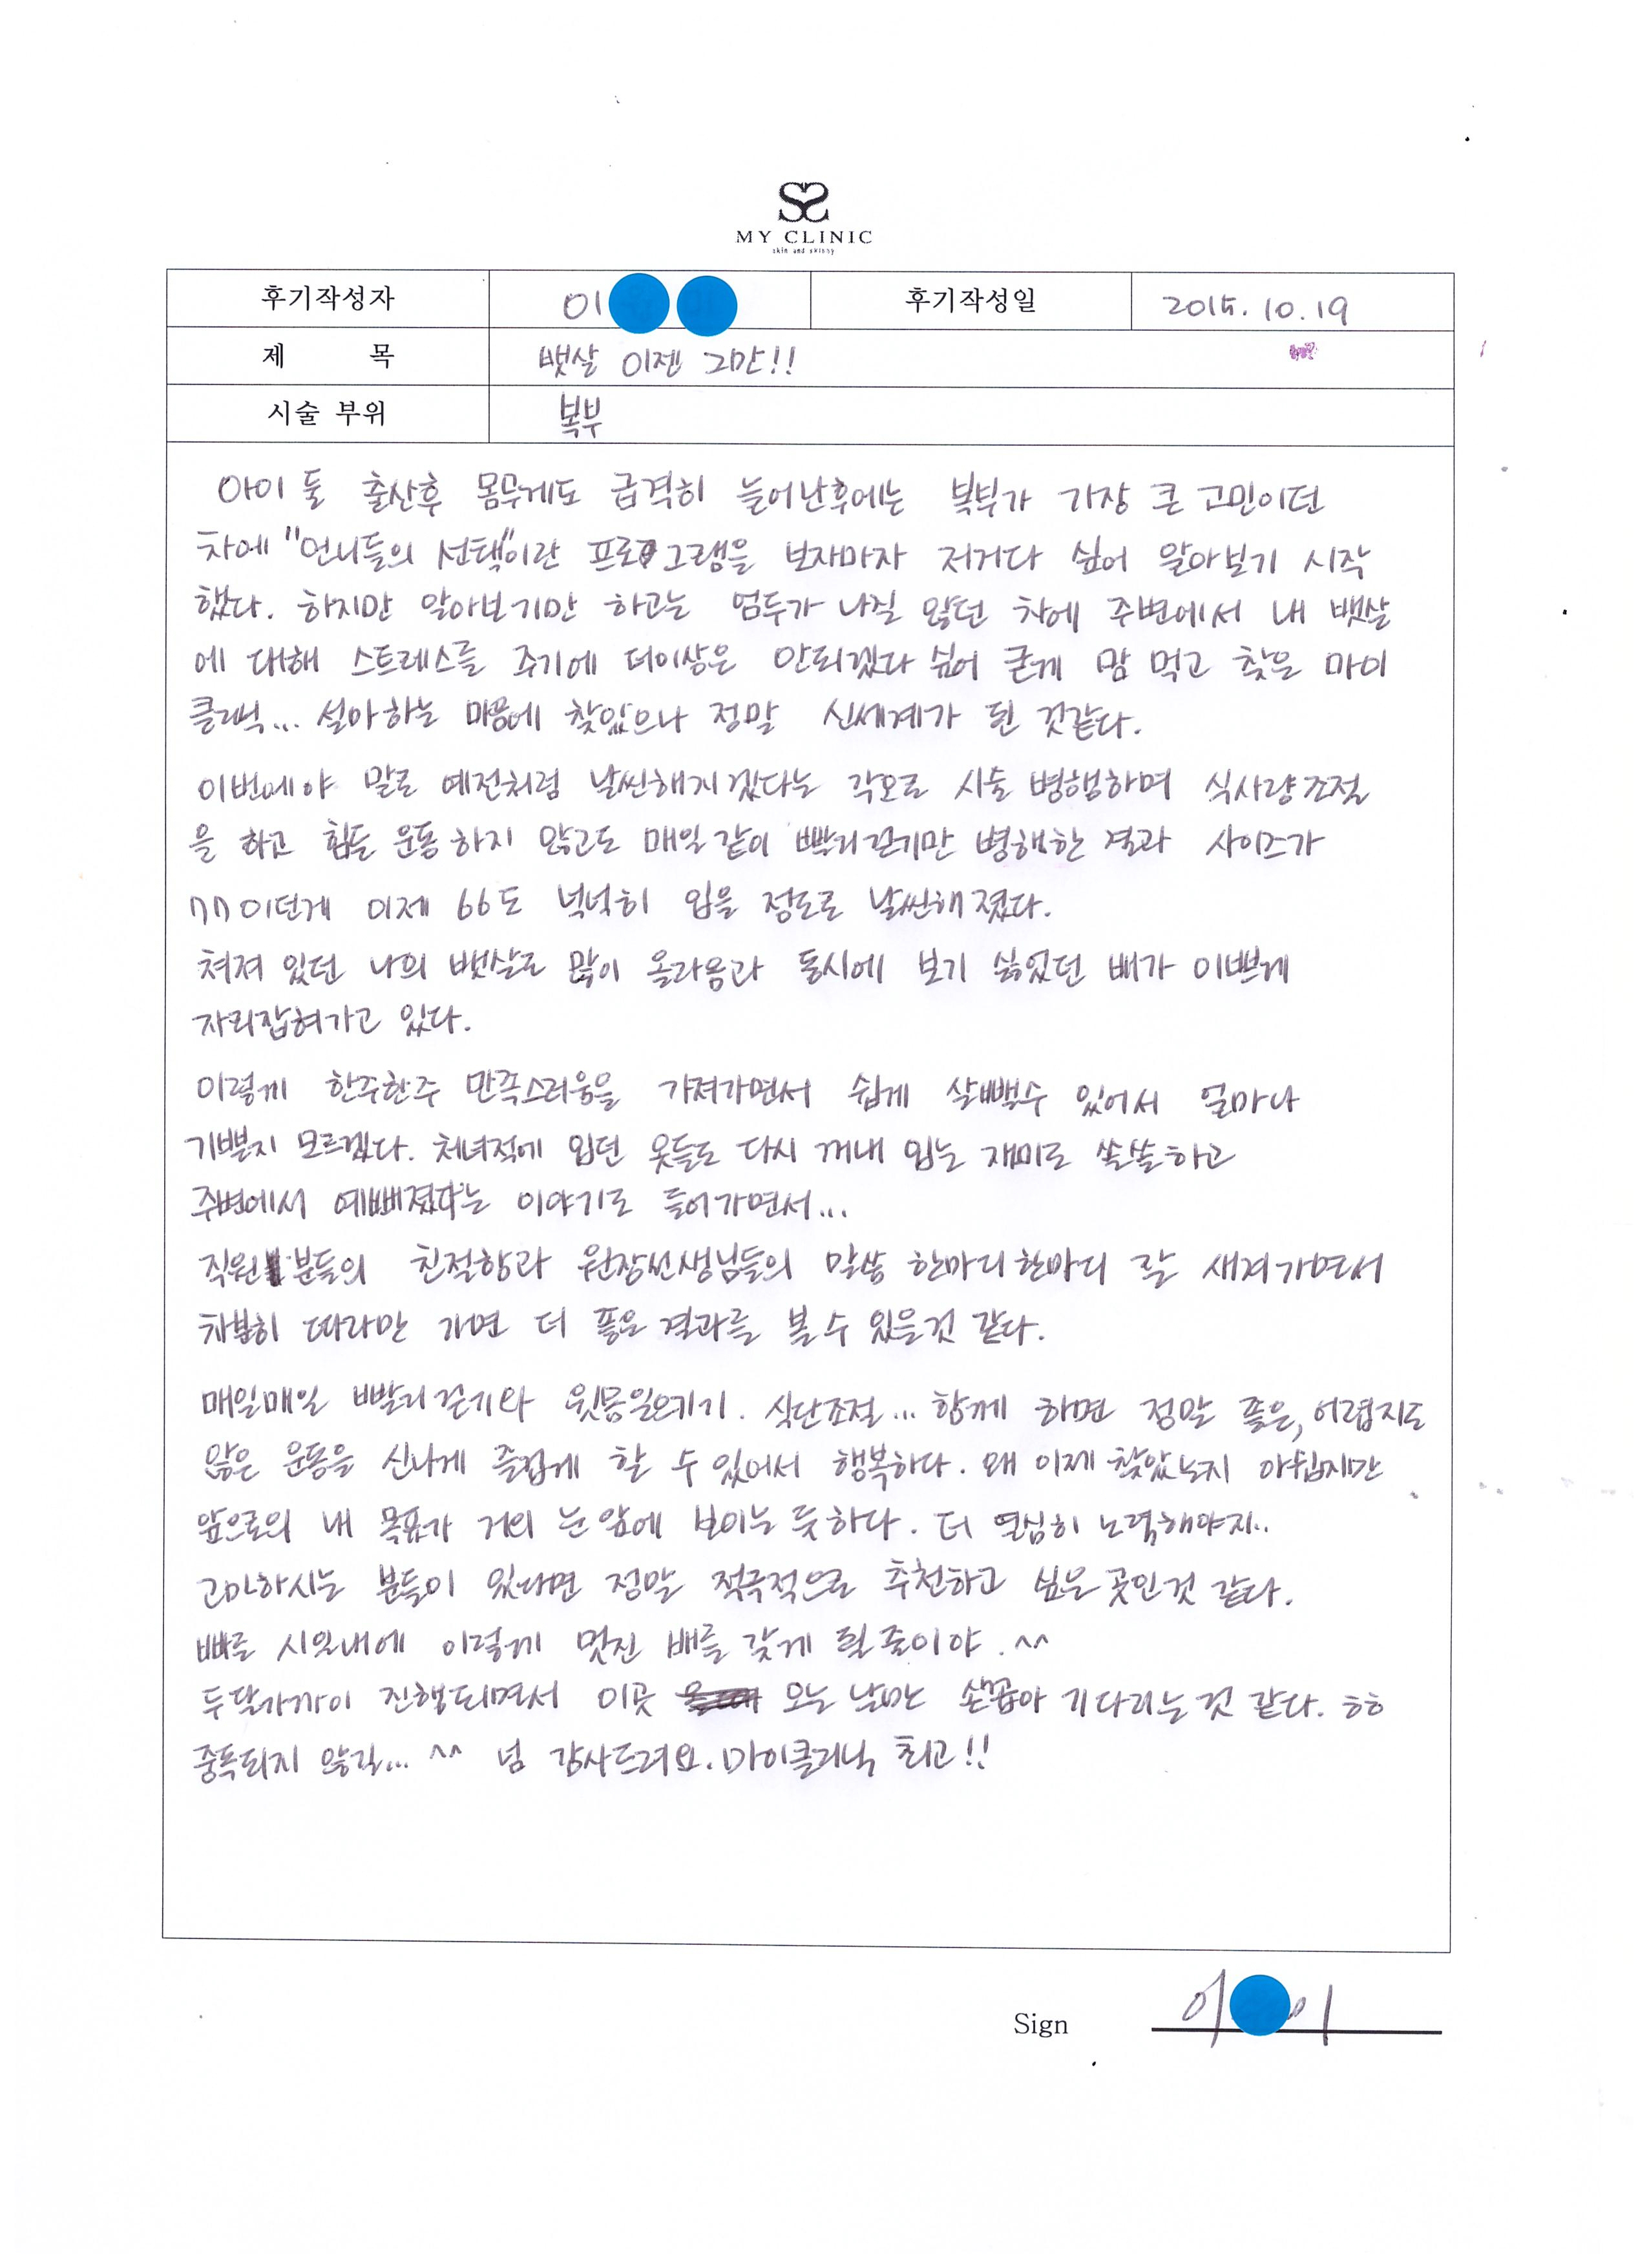 MY CLINIC
skin and skinny
후기작성자 이 후기작성일 2015. 10. 19
제 목 뱃살 이젠 그만!!
시술 부위 복부
아이 둘 출산후 몸무게도 급격히 늘어난후에는 복부가 가장 큰 고민이던
차에 "언니들의 선택"이란 프로그램을 보자마자 저거다 싶어 알아보기 시작
했다. 하지만 알아보기만 하고는 엄두가 나질 않던 차에 주변에서 내 뱃살
에 대해 스트레스를 주기에 더이상은 안되겠다 싶어 굳게 맘 먹고 찾은 마이
클리닉... 설마하는 마음에 찾았으나 정말 신세계가 된 것같다.
이번에야 말로 예전처럼 날씬해지겠다는 각오로 시술 병행하며 식사량조절
을 하고 힘든 운동 하지 않고도 매일같이 빨리걷기만 병행한 결과 사이즈가
77이던게 이제 66도 넉넉히 입을 정도로 날씬해졌다.
쳐져 있던 나의 뱃살도 많이 올라옴과 동시에 보기 싫었던 배가 이쁘게
자리잡혀가고 있다.
이렇게 한주한주 만족스러움을 가져가면서 쉽게 살뺄수 있어서 얼마나
기쁜지 모르겠다. 처녀적에 입던 옷들도 다시 꺼내 입는 재미로 쏠쏠하고
주변에서 예뻐졌다는 이야기도 들어가면서...
직원분들의 친절함과 원장선생님들의 말씀 한마디한마디 잘 새겨가면서
차분히 따라만 가면 더 좋은 결과를 볼 수 있을것 같다.
매일매일 빨리걷기와 윗몸일으키기. 식단조절... 함께 하면 정말 좋은, 어렵지도
않은 운동을 신나게 즐겁게 할 수 있어서 행복하다. 왜 이제 찾았는지 아쉽지만
앞으로의 내 목표가 거의 눈앞에 보이는 듯하다. 더 열심히 노력해야지..
고민하시는 분들이 있다면 정말 적극적으로 추천하고 싶은 곳인것 같다.
빠른 시일내에 이렇게 멋진 배를 갖게 될 줄이야. ^^
두달가까이 진행되면서 이곳 오는 날만 손꼽아 기다리는 것 같다. ㅎㅎ
중독되지 않길... ^^ 넘 감사드려요. 마이클리닉 최고!!
Sign 이